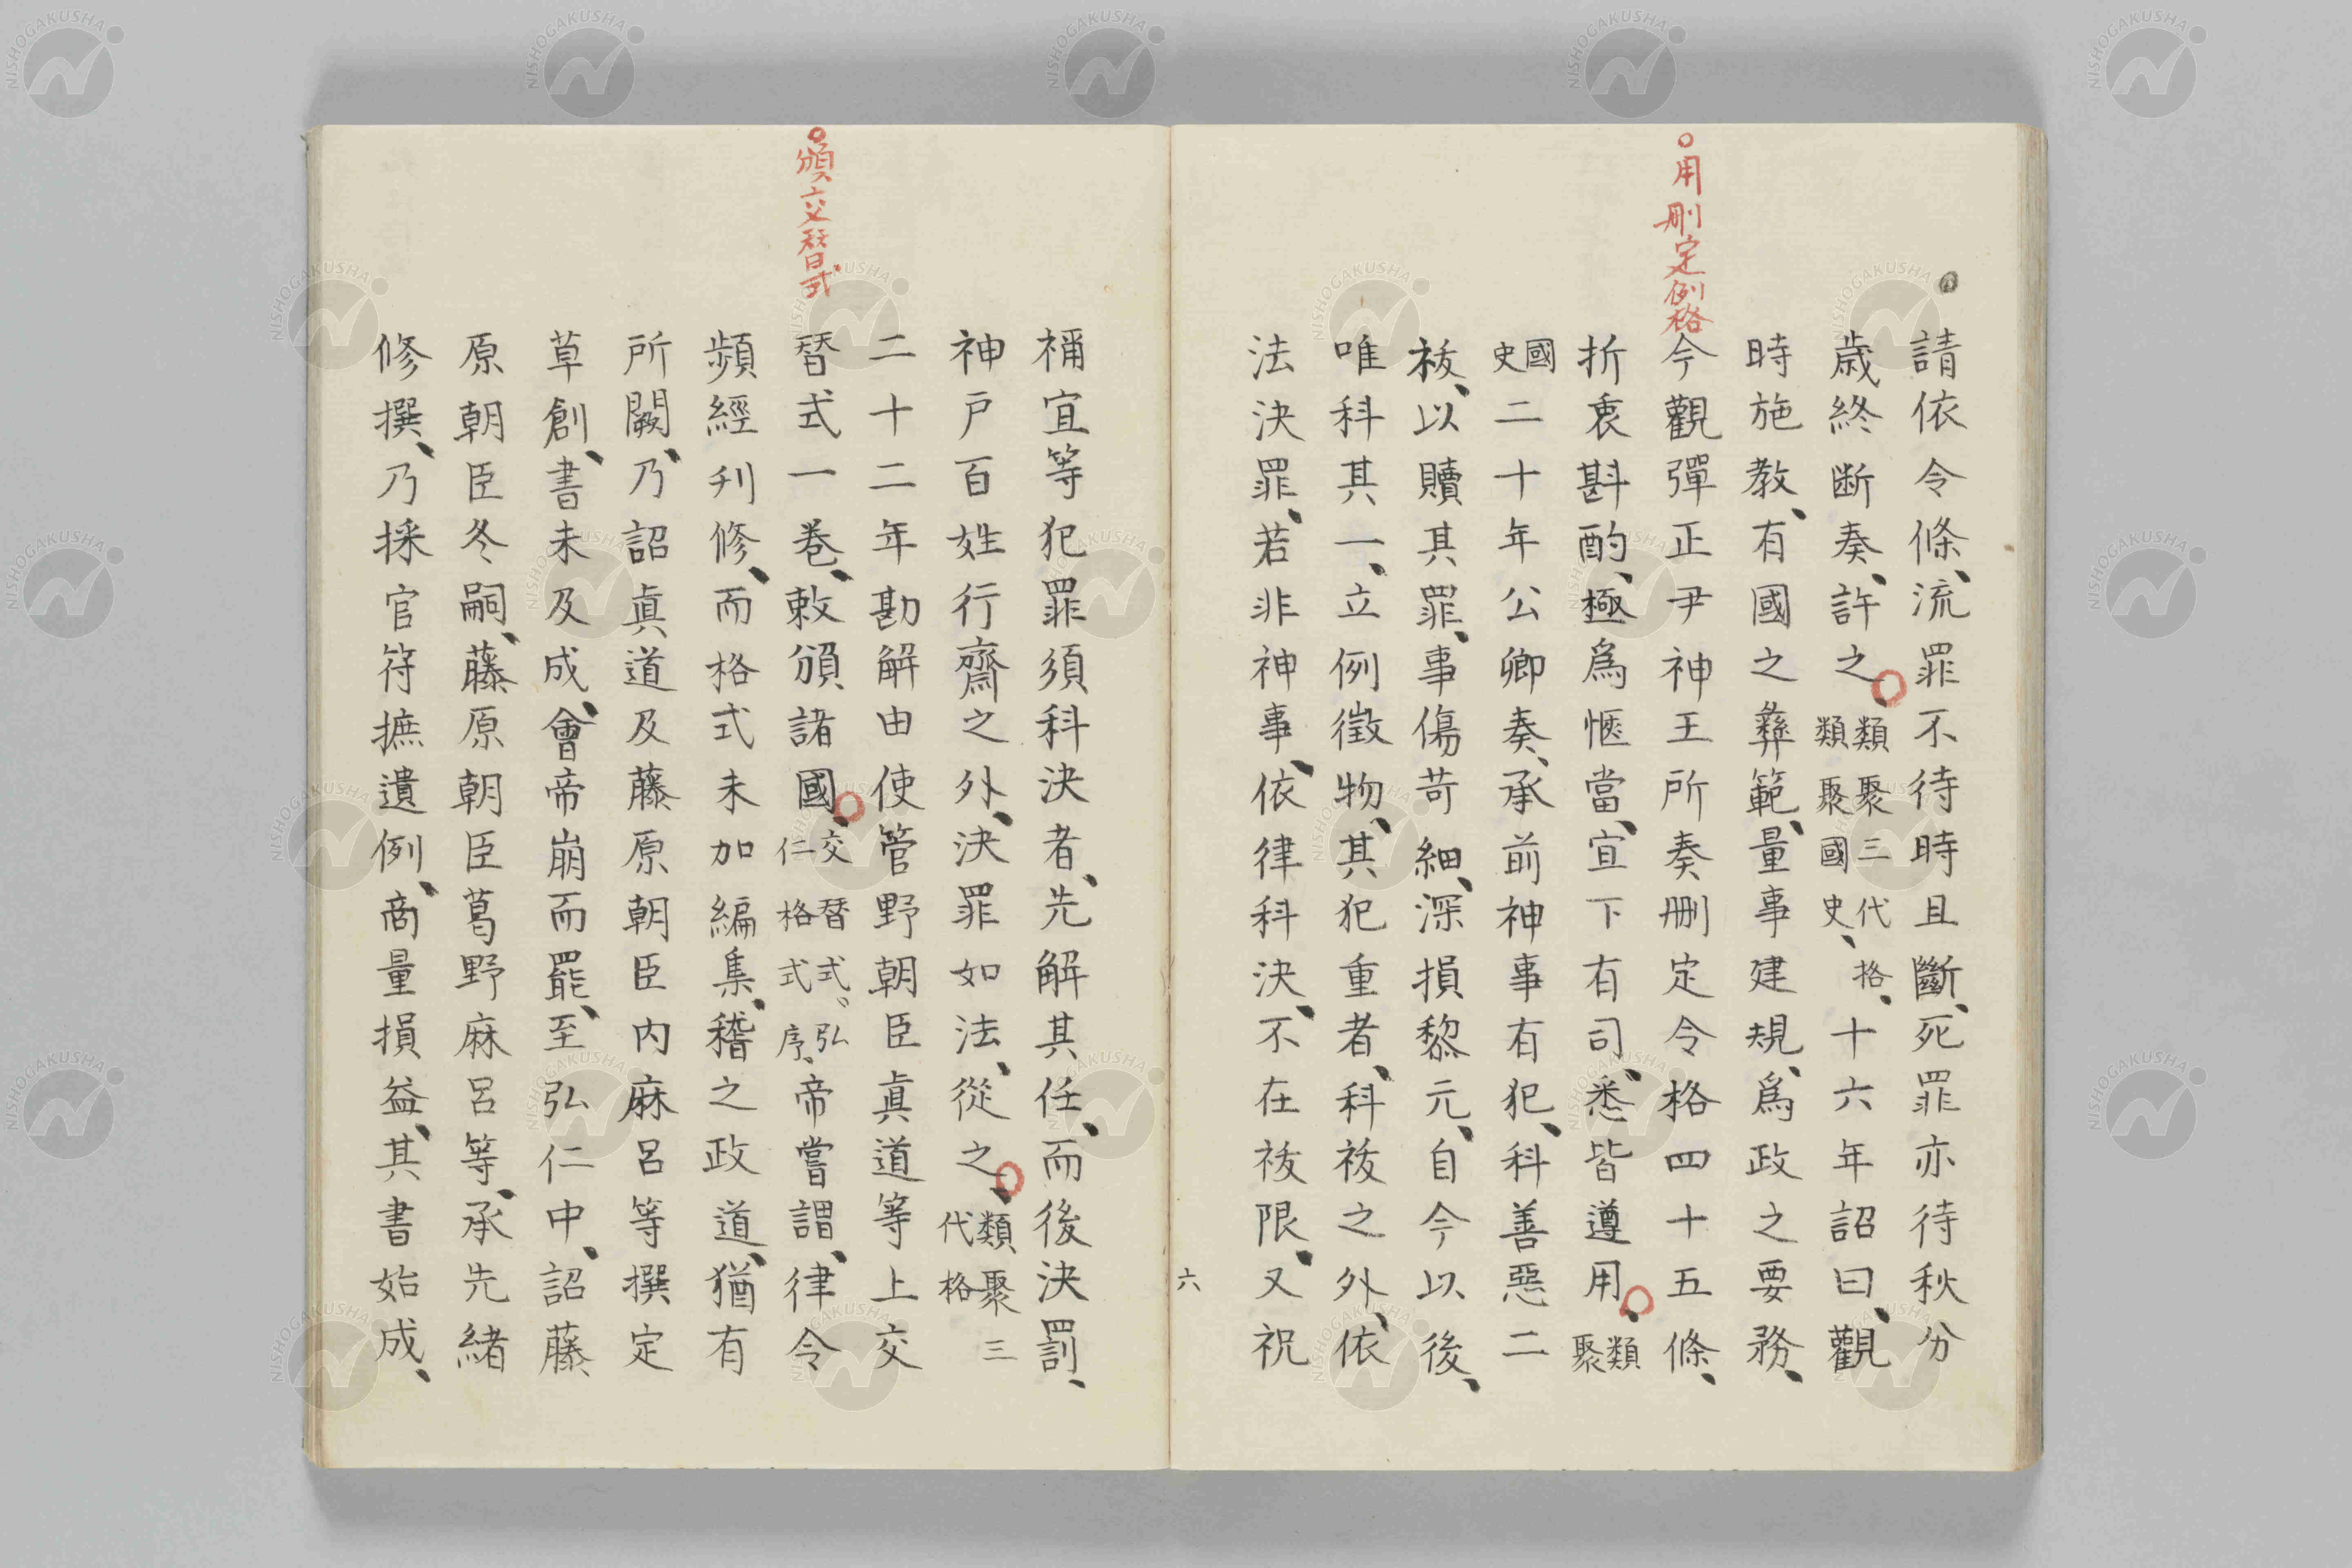 ○用刪定例格
請依令條、流罪不待時且斷、死罪亦待秋分
歳終断奏、許之○類聚三代格、類聚國史、十六年詔曰、觀
時施教、有國之彝範、量事建規、爲政之要務、
今觀彈正尹神王所奏刪定令格四十五條、
折衷斟酌、極爲愜當、宜下有司、悉皆遵用○類聚
國史二十年公卿奏、承前神事有犯、科善惡二
祓、以贖其罪、事傷苛細、深損黎元、自今以後、
唯科其一、立例徵物、其犯重者、科祓之外、依
法決罪、若非神事、依律科決、不在祓限、又祝
六
○頒六交替式
禰宜等犯罪須科決者、先解其任、而後決罰、
神戸百姓行齋之外、決罪如法、從之○類聚三代格
二十二年勘解由使管野朝臣眞道等上交
替式一巻、敕頒諸國○交替式、弘仁格式序、帝嘗謂、律令
頻經刋修、而格式未加編集、稽之政道、猶有
所闕、乃詔眞道及藤原朝臣内麻呂等撰定
草創、書未及成、會帝崩而罷、至弘仁中、詔藤
原朝臣冬嗣、藤原朝臣葛野麻呂等、承先緒
修撰、乃採官符摭遺例、商量損益、其書始成、
NISHOGAKUSHA